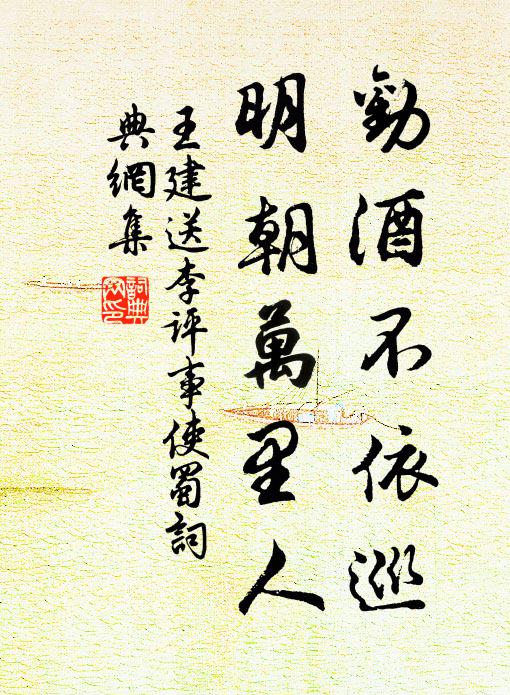 勸酒不依巡
明朝萬里人
王建送李評事使蜀詞
典網集
詞典網印